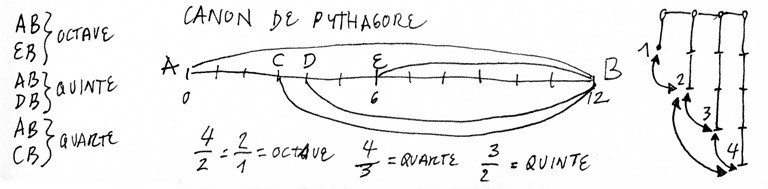 CANON DE PYTHAGORE
AB
EB } OCTAVE
AB
DB } QUINTE
AB
CB } QUARTE
A C D E B
0 6 12
4/2 = 2/1 = OCTAVE 4/3 = QUARTE 3/2 = QUINTE
1
2
3
4